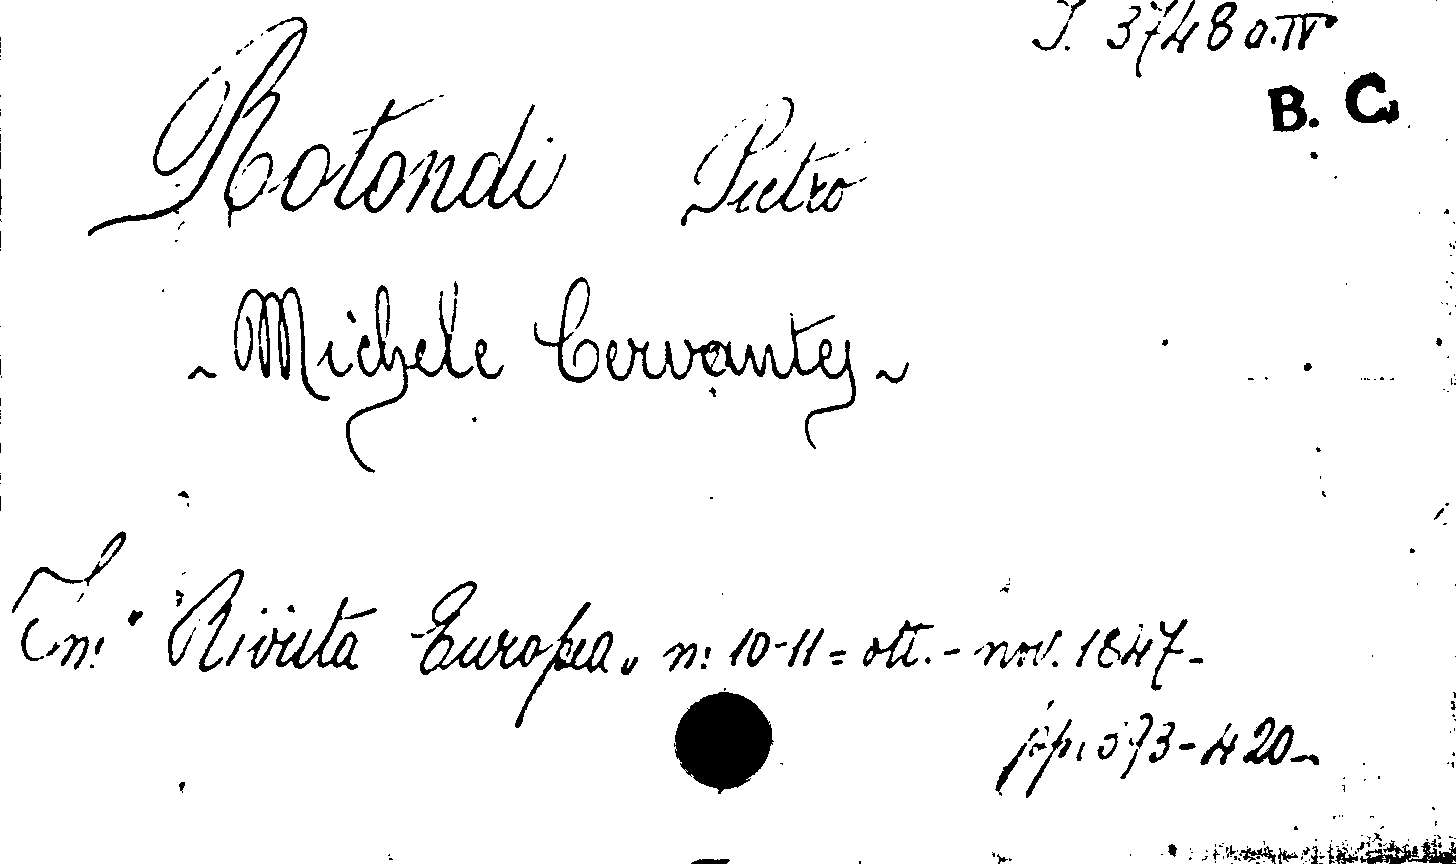 J. 3748 a.IV°
B. C.
Rotondi Pietro
- Michele Cervantes -
In: "Rivista Europea" n: 10-11 = ott. - nov. 1847 -
pp. 373 - 420 -